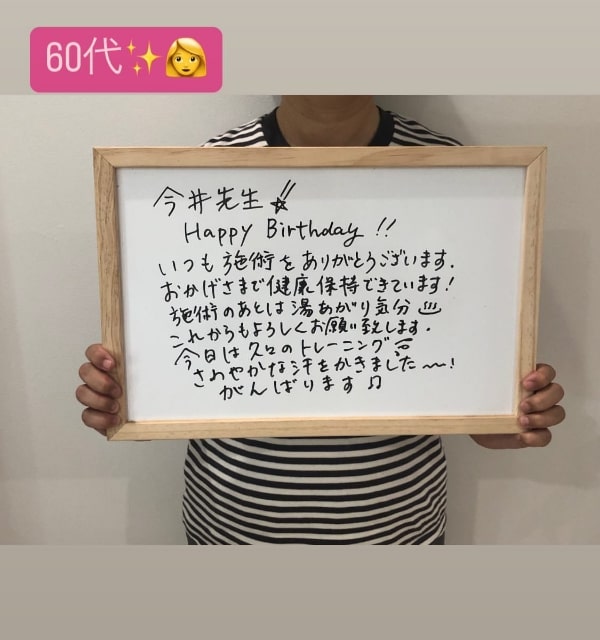 60代✨👩
今井先生
Happy Birthday !!
いつも施術をありがとうございます.
おかげさまで健康保持できています!
施術のあとは湯あがり気分♨
これからもよろしくお願い致します.
今日は久々のトレーニング
さわやかな汗をかきました〜!
がんばります♫